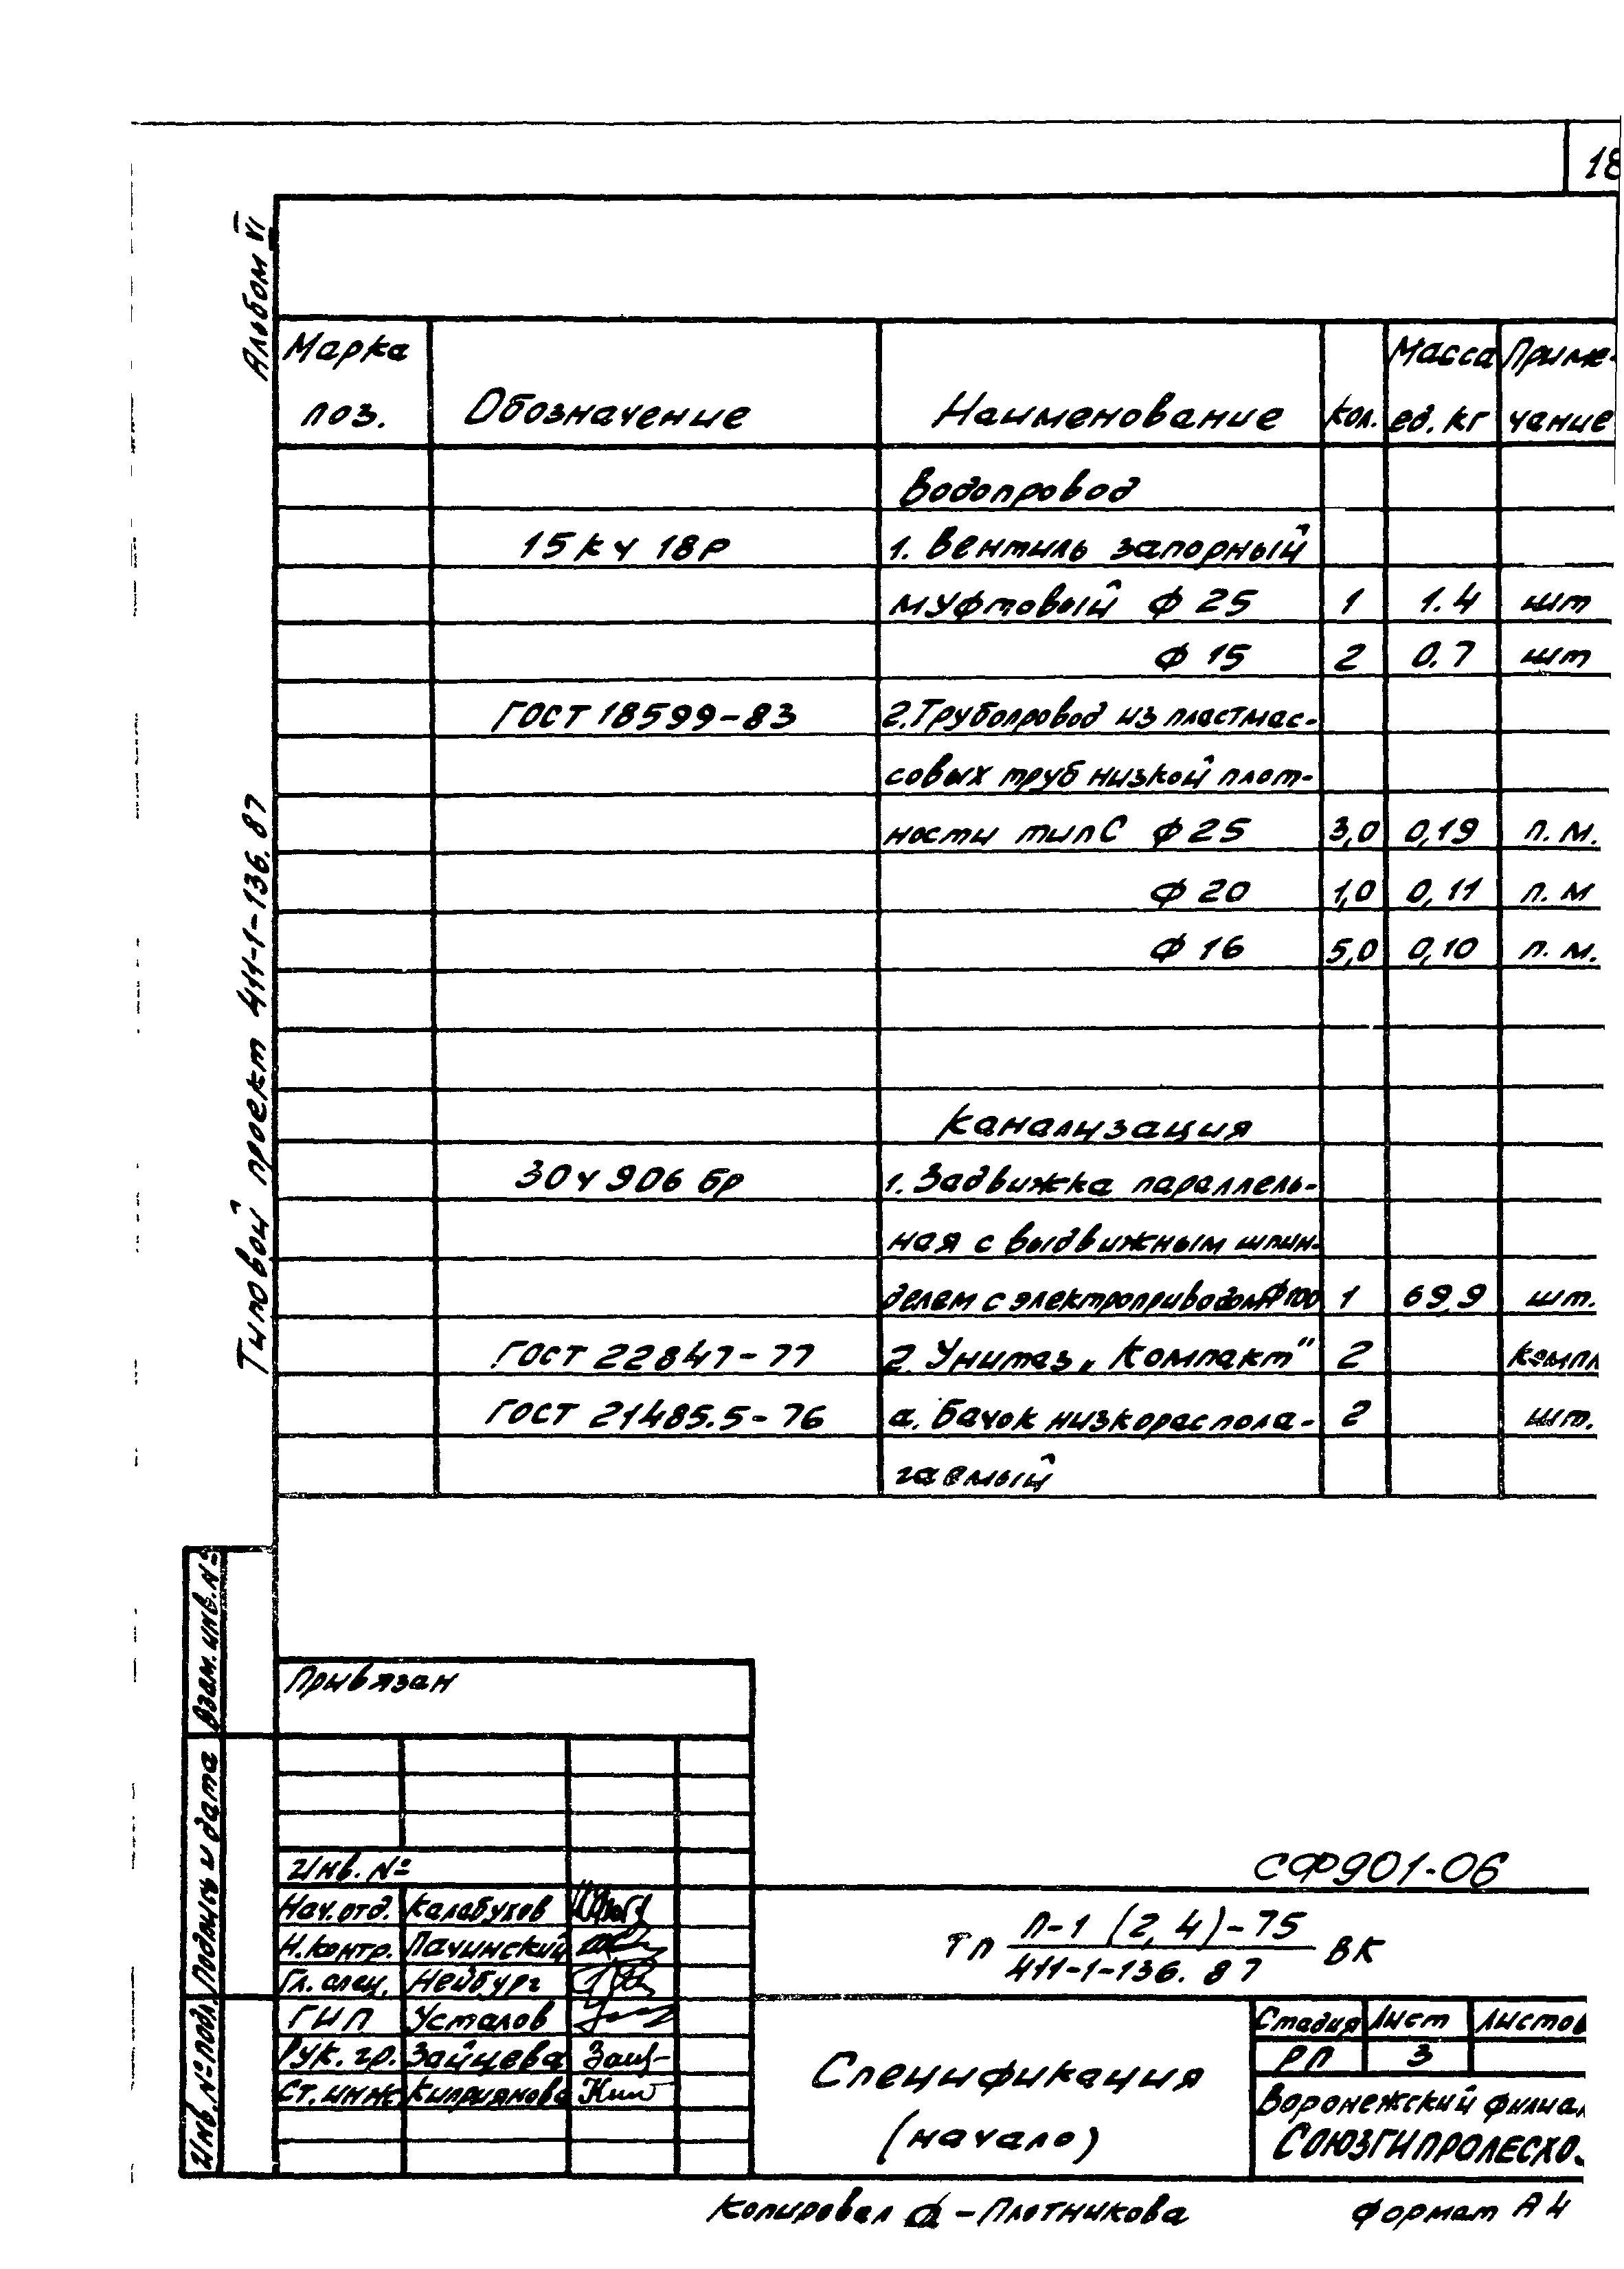 18
Альбом VI
Типовой проект 411-1-136.87
Марка поз. Обозначение Наименование Кол. Масса ед. кг Приме- чание
Водопровод
15 кч 18 р 1. Вентиль запорный
муфтовый ф 25 1 1.4 шт
ф 15 2 0.7 шт
ГОСТ 18599-83 2. Трубопровод из пластмас-
совых труб низкой плот-
ности тип С ф 25 3,0 0,19 п. м.
ф 20 1,0 0,11 п. м
ф 16 5,0 0,10 п. м.
Канализация
30ч 906 бр 1. Задвижка параллель-
ная с выдвижным шпин-
делем с электроприводом ф 100 1 69,9 шт.
ГОСТ 22847-77 2. Унитаз „Компакт" 2 компл
ГОСТ 21485.5-76 а. Бачок низкораспола- 2 шт.
гаемый
Взам. инв. №
Подпись и дата
Инв. № подл.
Привязан
Инв. №
Нач. отд. Калабухов
Н. контр. Пачинский
Гл. спец. Нейбург
ГИП Усталов
Рук. гр. Зайцева
Ст. инж. Киприянова
СФ901-06
ТП П-1 (2,4)-75 ВК
411-1-136.87
Спецификация
(начало)
Стадия Лист Листов
РП 3
Воронежский филиал
СОЮЗГИПРОЛЕСХО
Копировал -Плотникова
Формат А4